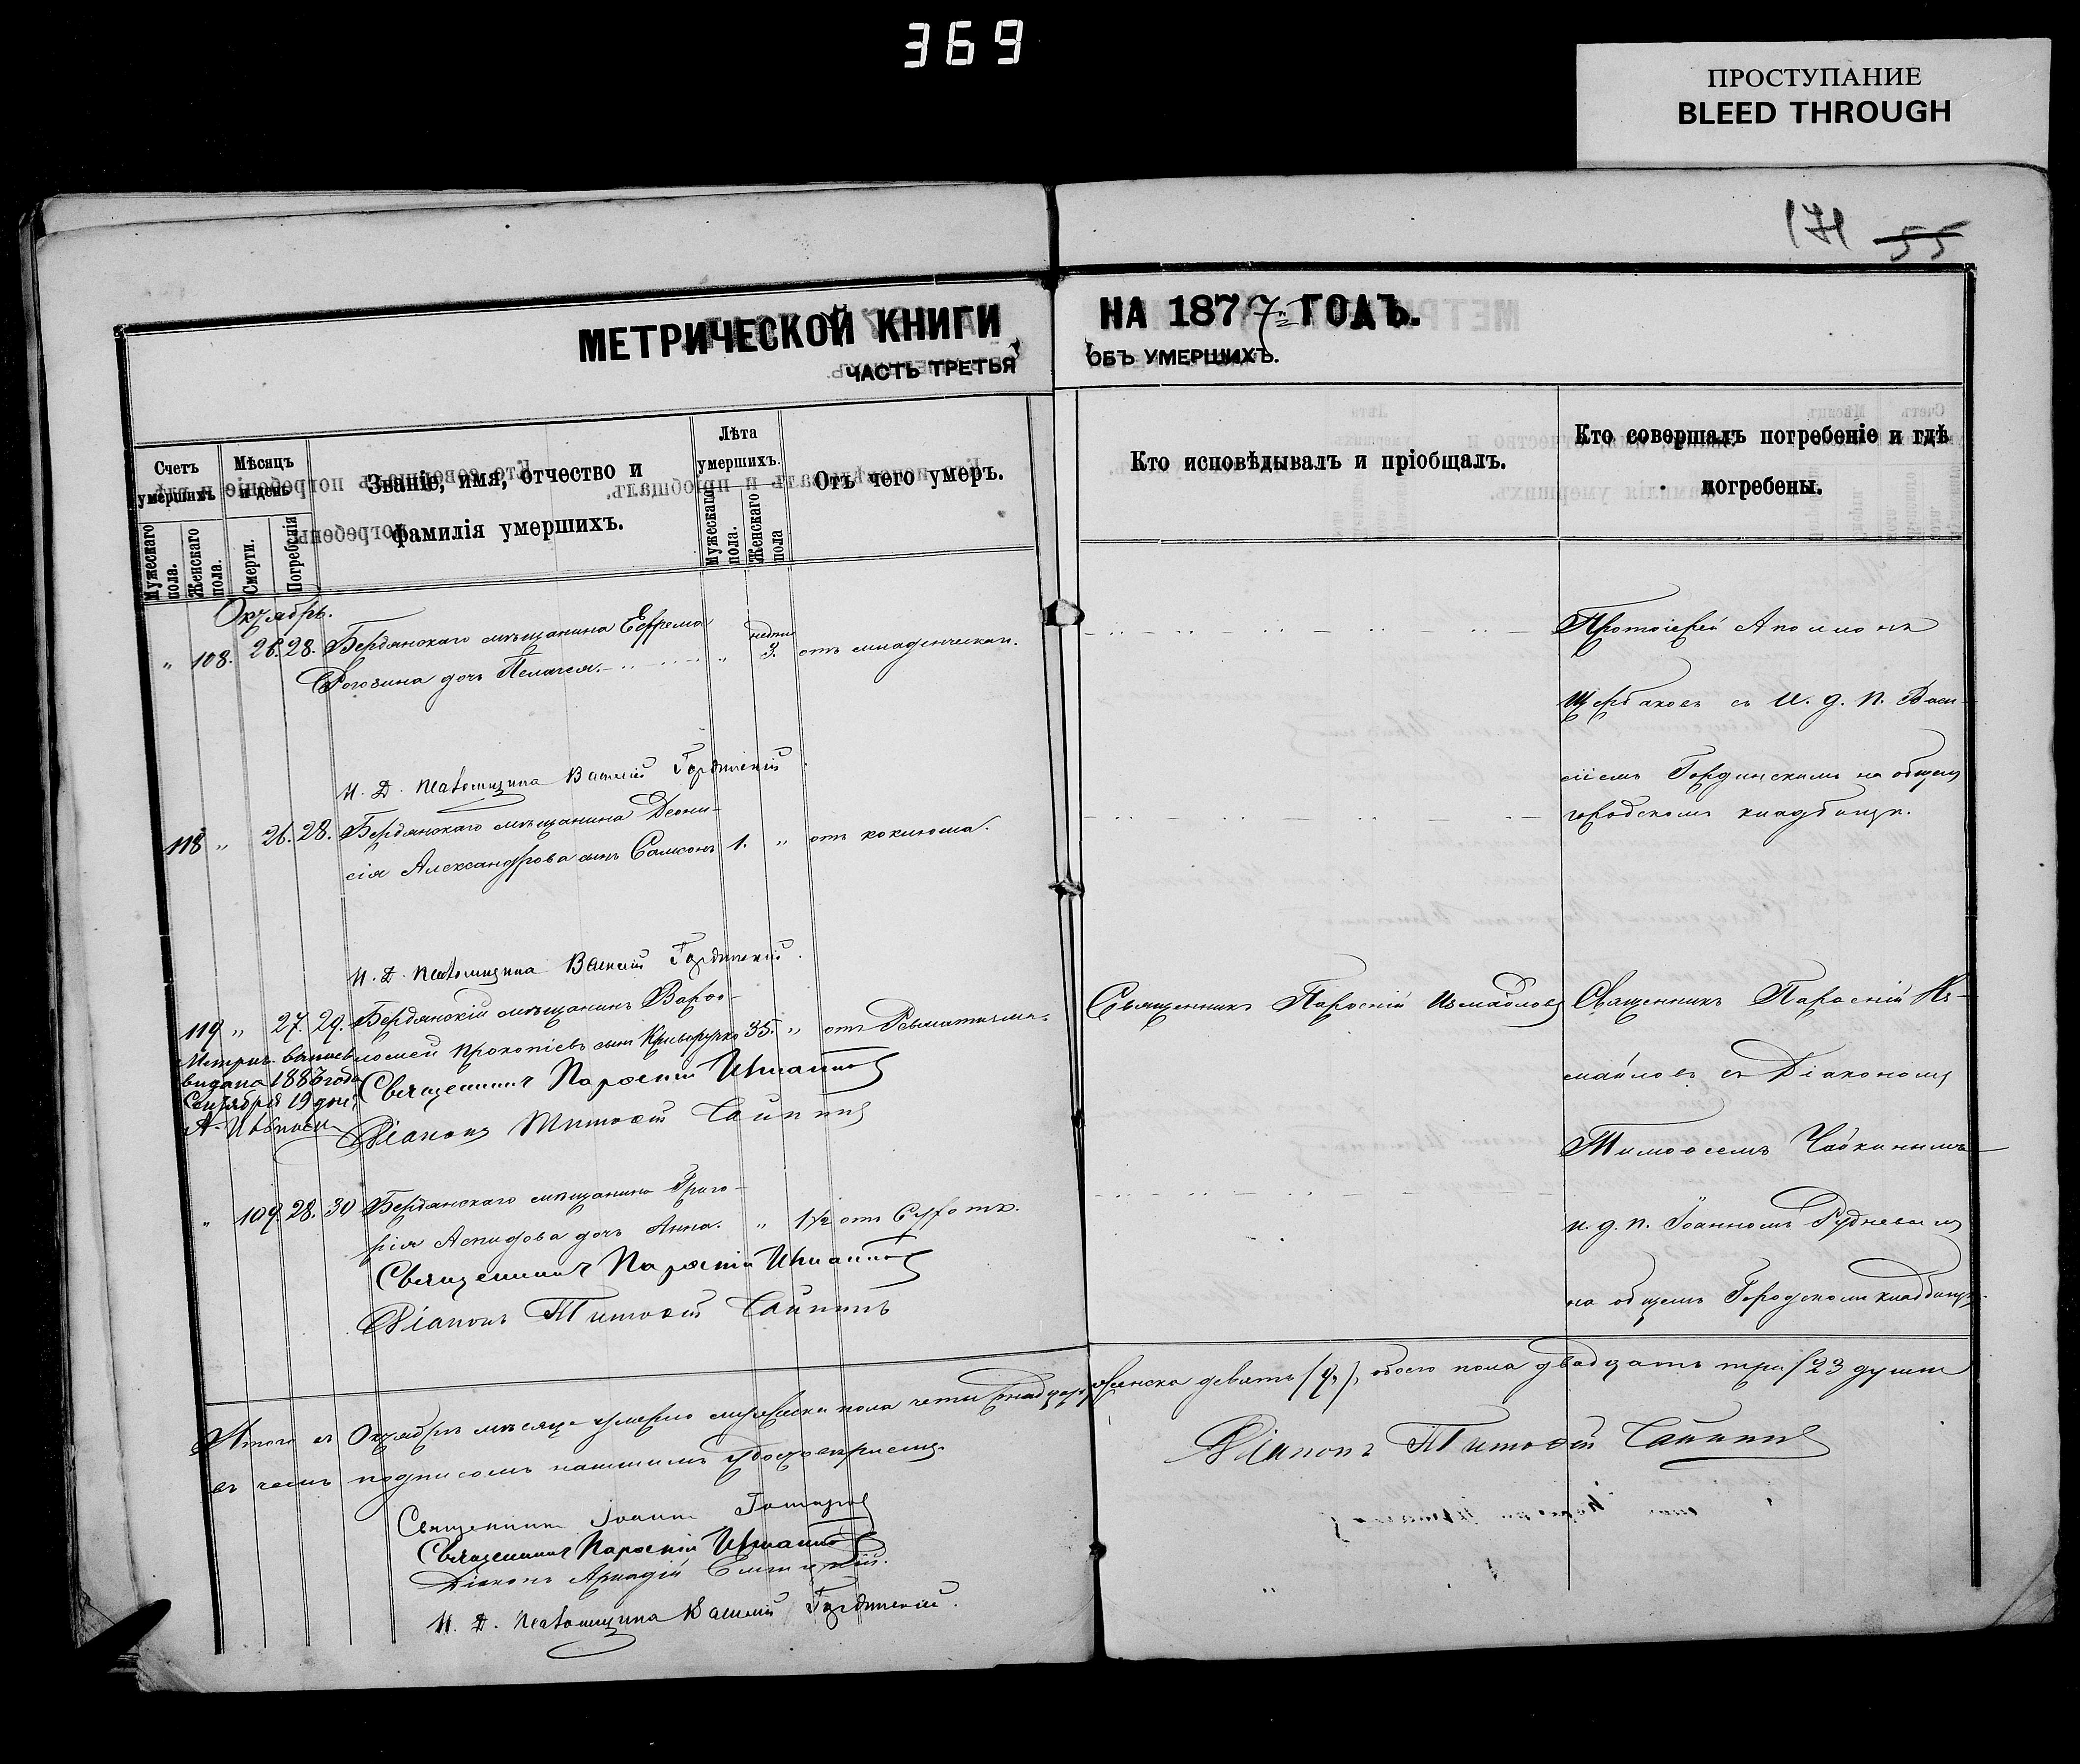 369
ПРОСТУПАНИЕ
BLEED THROUGH
171 55
МЕТРИЧЕСКОЙ КНИГИ НА 1877 ГОДЪ.
ЧАСТЬ ТРЕТЬЯ ОБЪ УМЕРШИХЪ.
Счетъ умершихъ
Мужескаго пола.
Женскаго пола.
Мѣсяцъ и день
Смерти.
Погребенія
Званіе, имя, отчество и
фамилія умершихъ.
Лѣта умершихъ.
Мужескаго пола.
Женскаго пола
Отъ чего умеръ.
Кто исповѣдывалъ и пріобщалъ.
Кто совершалъ погребеніе и гдѣ
погребены.
Октябрь.
" 108. 26. 28. Бердянскаго мѣщанина Ефрема
Рогозина дочь Пелагея. " 3. отъ младенческой.
Протоіерей Аполлонъ
Щербаковъ съ И. д. п. Васи-
ліемъ Гординскимъ на общемъ
городскомъ кладбищѣ.
И. Д. Псаломщика Василій Гординскій
118 " 26. 28. Бердянскаго мѣщанина Діони-
сія Александрова сынъ Самсонъ 1. " отъ коклюша.
И. Д. Псаломщика Василій Гординскій.
119 " 27. 29. Бердянскій мѣщанинъ Варѳо-
ломей Прокопіевъ сынъ Криворучко 35. " отъ Ревматизма.
Метрич. выпись
выдана 1887 года
Сентября 19 дня
Священникъ Парѳеній Измаиловъ
Діаконъ Тимоѳей Чайкинъ
Священникъ Парѳеній Измайловъ
Священникъ Парѳеній Из-
майловъ съ Діакономъ
Тимоѳеемъ Чайкинымъ
и. д. п. Іоанномъ Рудневымъ
на общемъ Городскомъ кладбищѣ.
" 109. 28. 30 Бердянскаго мѣщанина Григо-
рія Аспидова дочь Анна. " 1½ отъ Сухотъ.
Священникъ Парѳеній Измаиловъ
Діаконъ Тимоѳей Чайкинъ
Итого въ Октябрѣ мѣсяцѣ умерло мужеска пола четырнадцать, женска девять (9), обоего пола двадцать три (23 души
въ чемъ подписомъ нашимъ удостовѣряемъ.
Діаконъ Тимоѳей Чайкинъ
Священникъ Іоаннъ
Священникъ Парѳеній Измаиловъ
Діаконъ Аркадій
И. Д. Псаломщика Василій Гординскій.